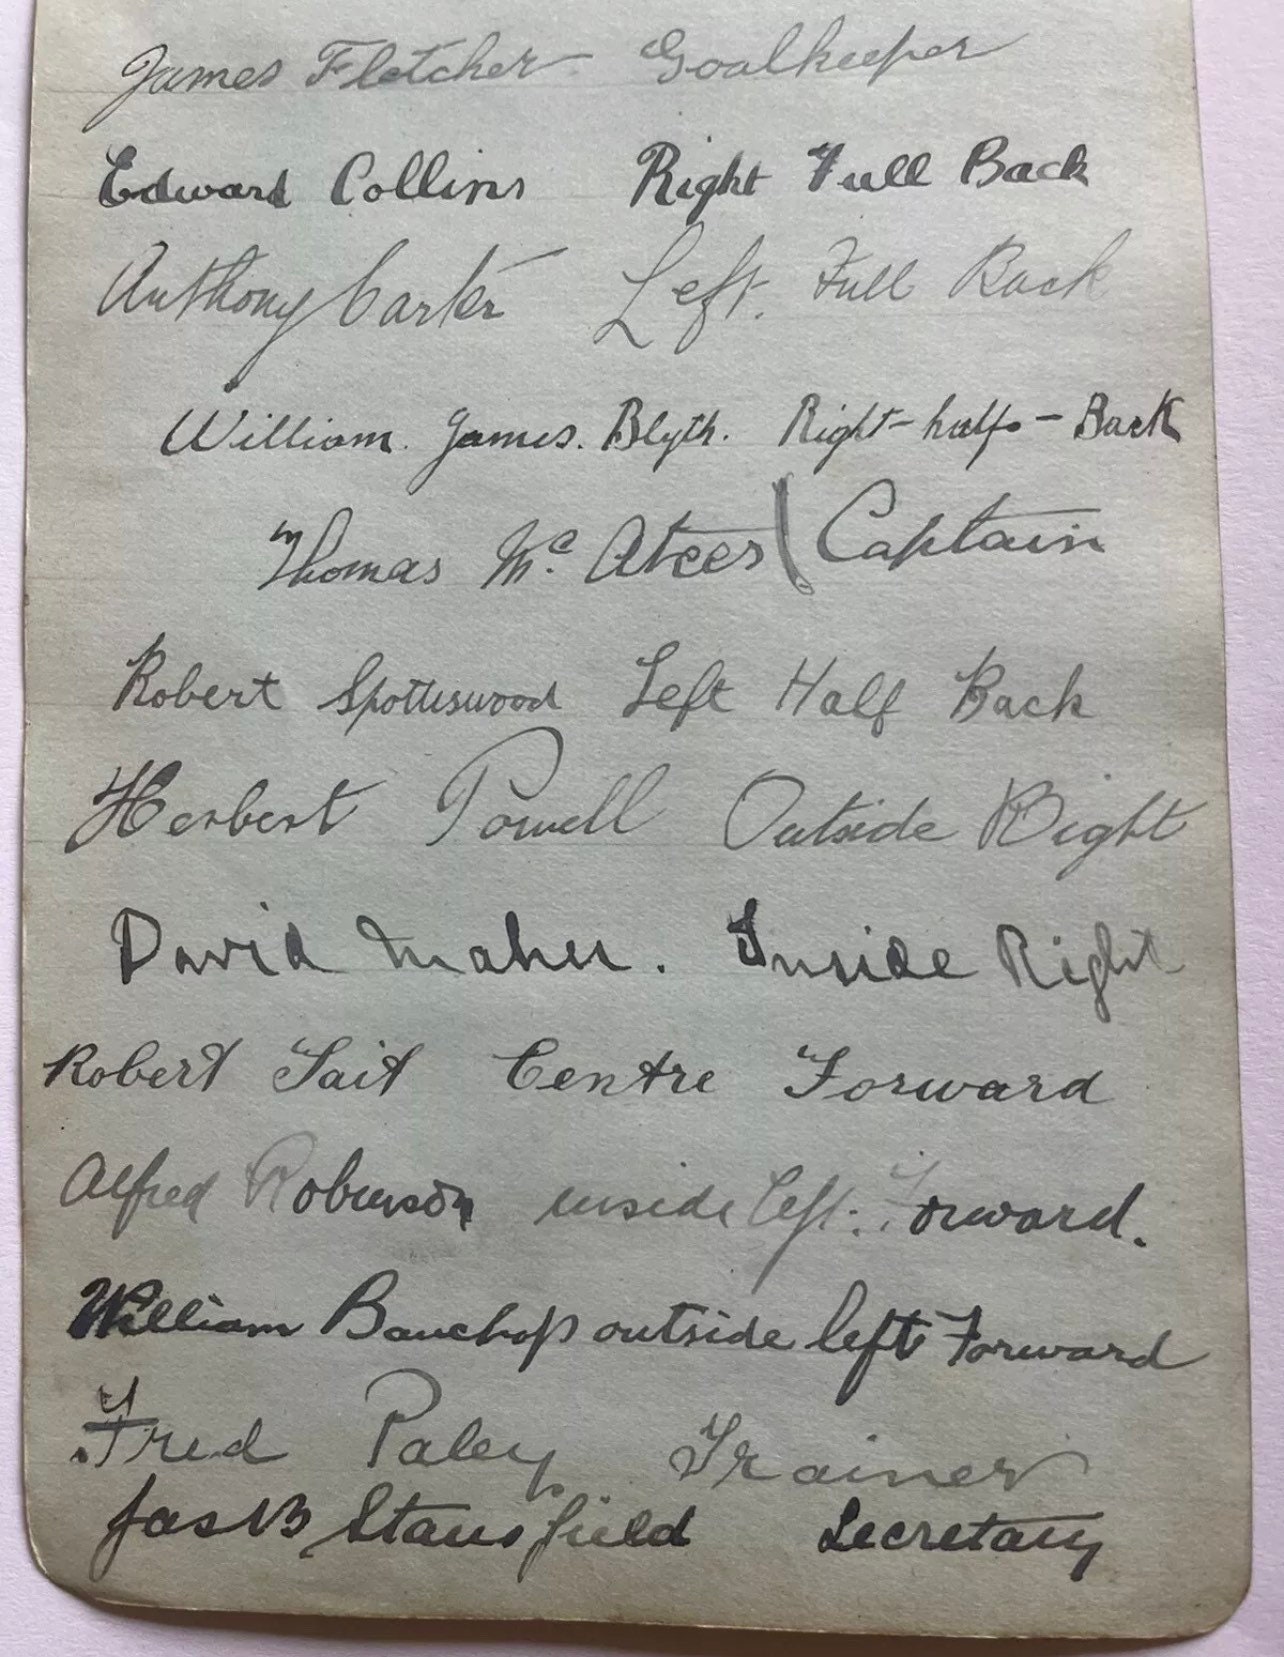 James Fletcher Goalkeeper
Edward Collins Right Full Back
Anthony Carter Left. Full Back
William. James. Blyth. Right-half-Back
Thomas Mc. Ateer Captain
Robert Spottiswood Left Half Back
Herbert Powell Outside Right
David Maher. Inside Right
Robert Tait Centre Forward
Alfred Robinson inside left. Forward.
William Bauchop outside left Forward
Fred Paley Trainer
Jas B Stansfield Secretary